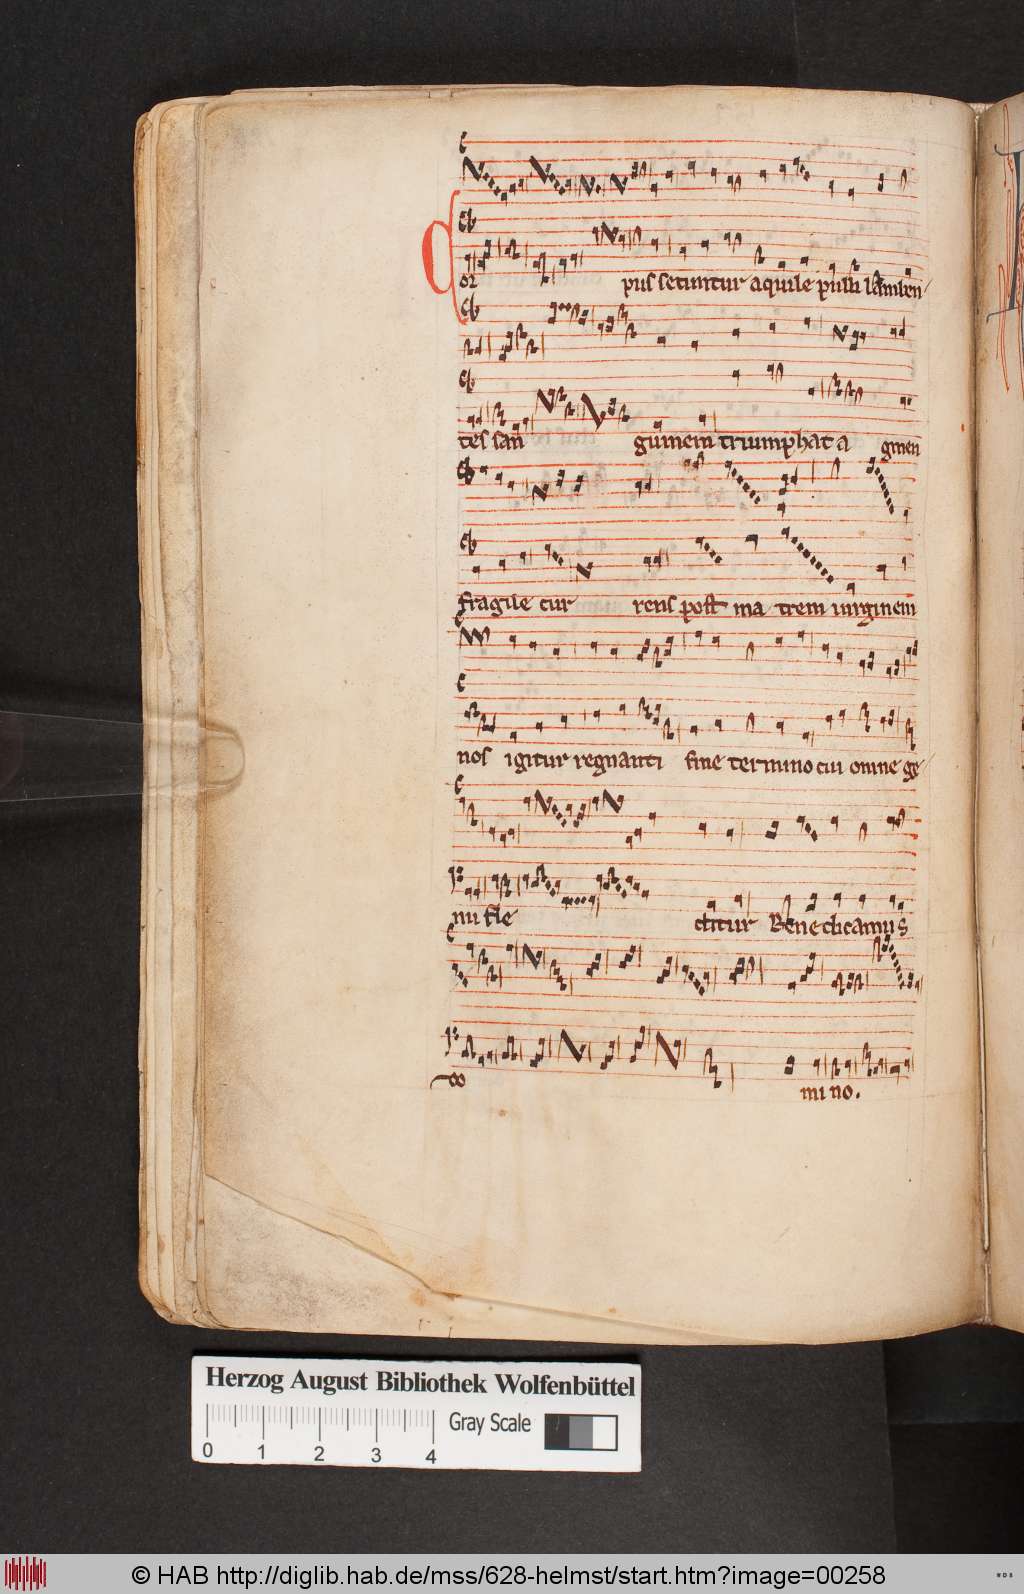 Cor pus setuntur aquile pulli lamben
tes san guinem triumphat a gmen
fragile cur rens post ma trem uirginem
nos igitur regnanti sine termino cui omne ge
nu fle ctitur Benedicamus
do mi no.
Herzog August Bibliothek Wolfenbüttel
Gray Scale
0 1 2 3 4
© HAB http://diglib.hab.de/mss/628-helmst/start.htm?image=00258